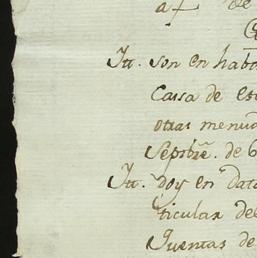 a de
Itt. son en hab
Cassa de es
otras menu
Sepbre. de 6
Itt. doy en data
ticular de
Quentas de